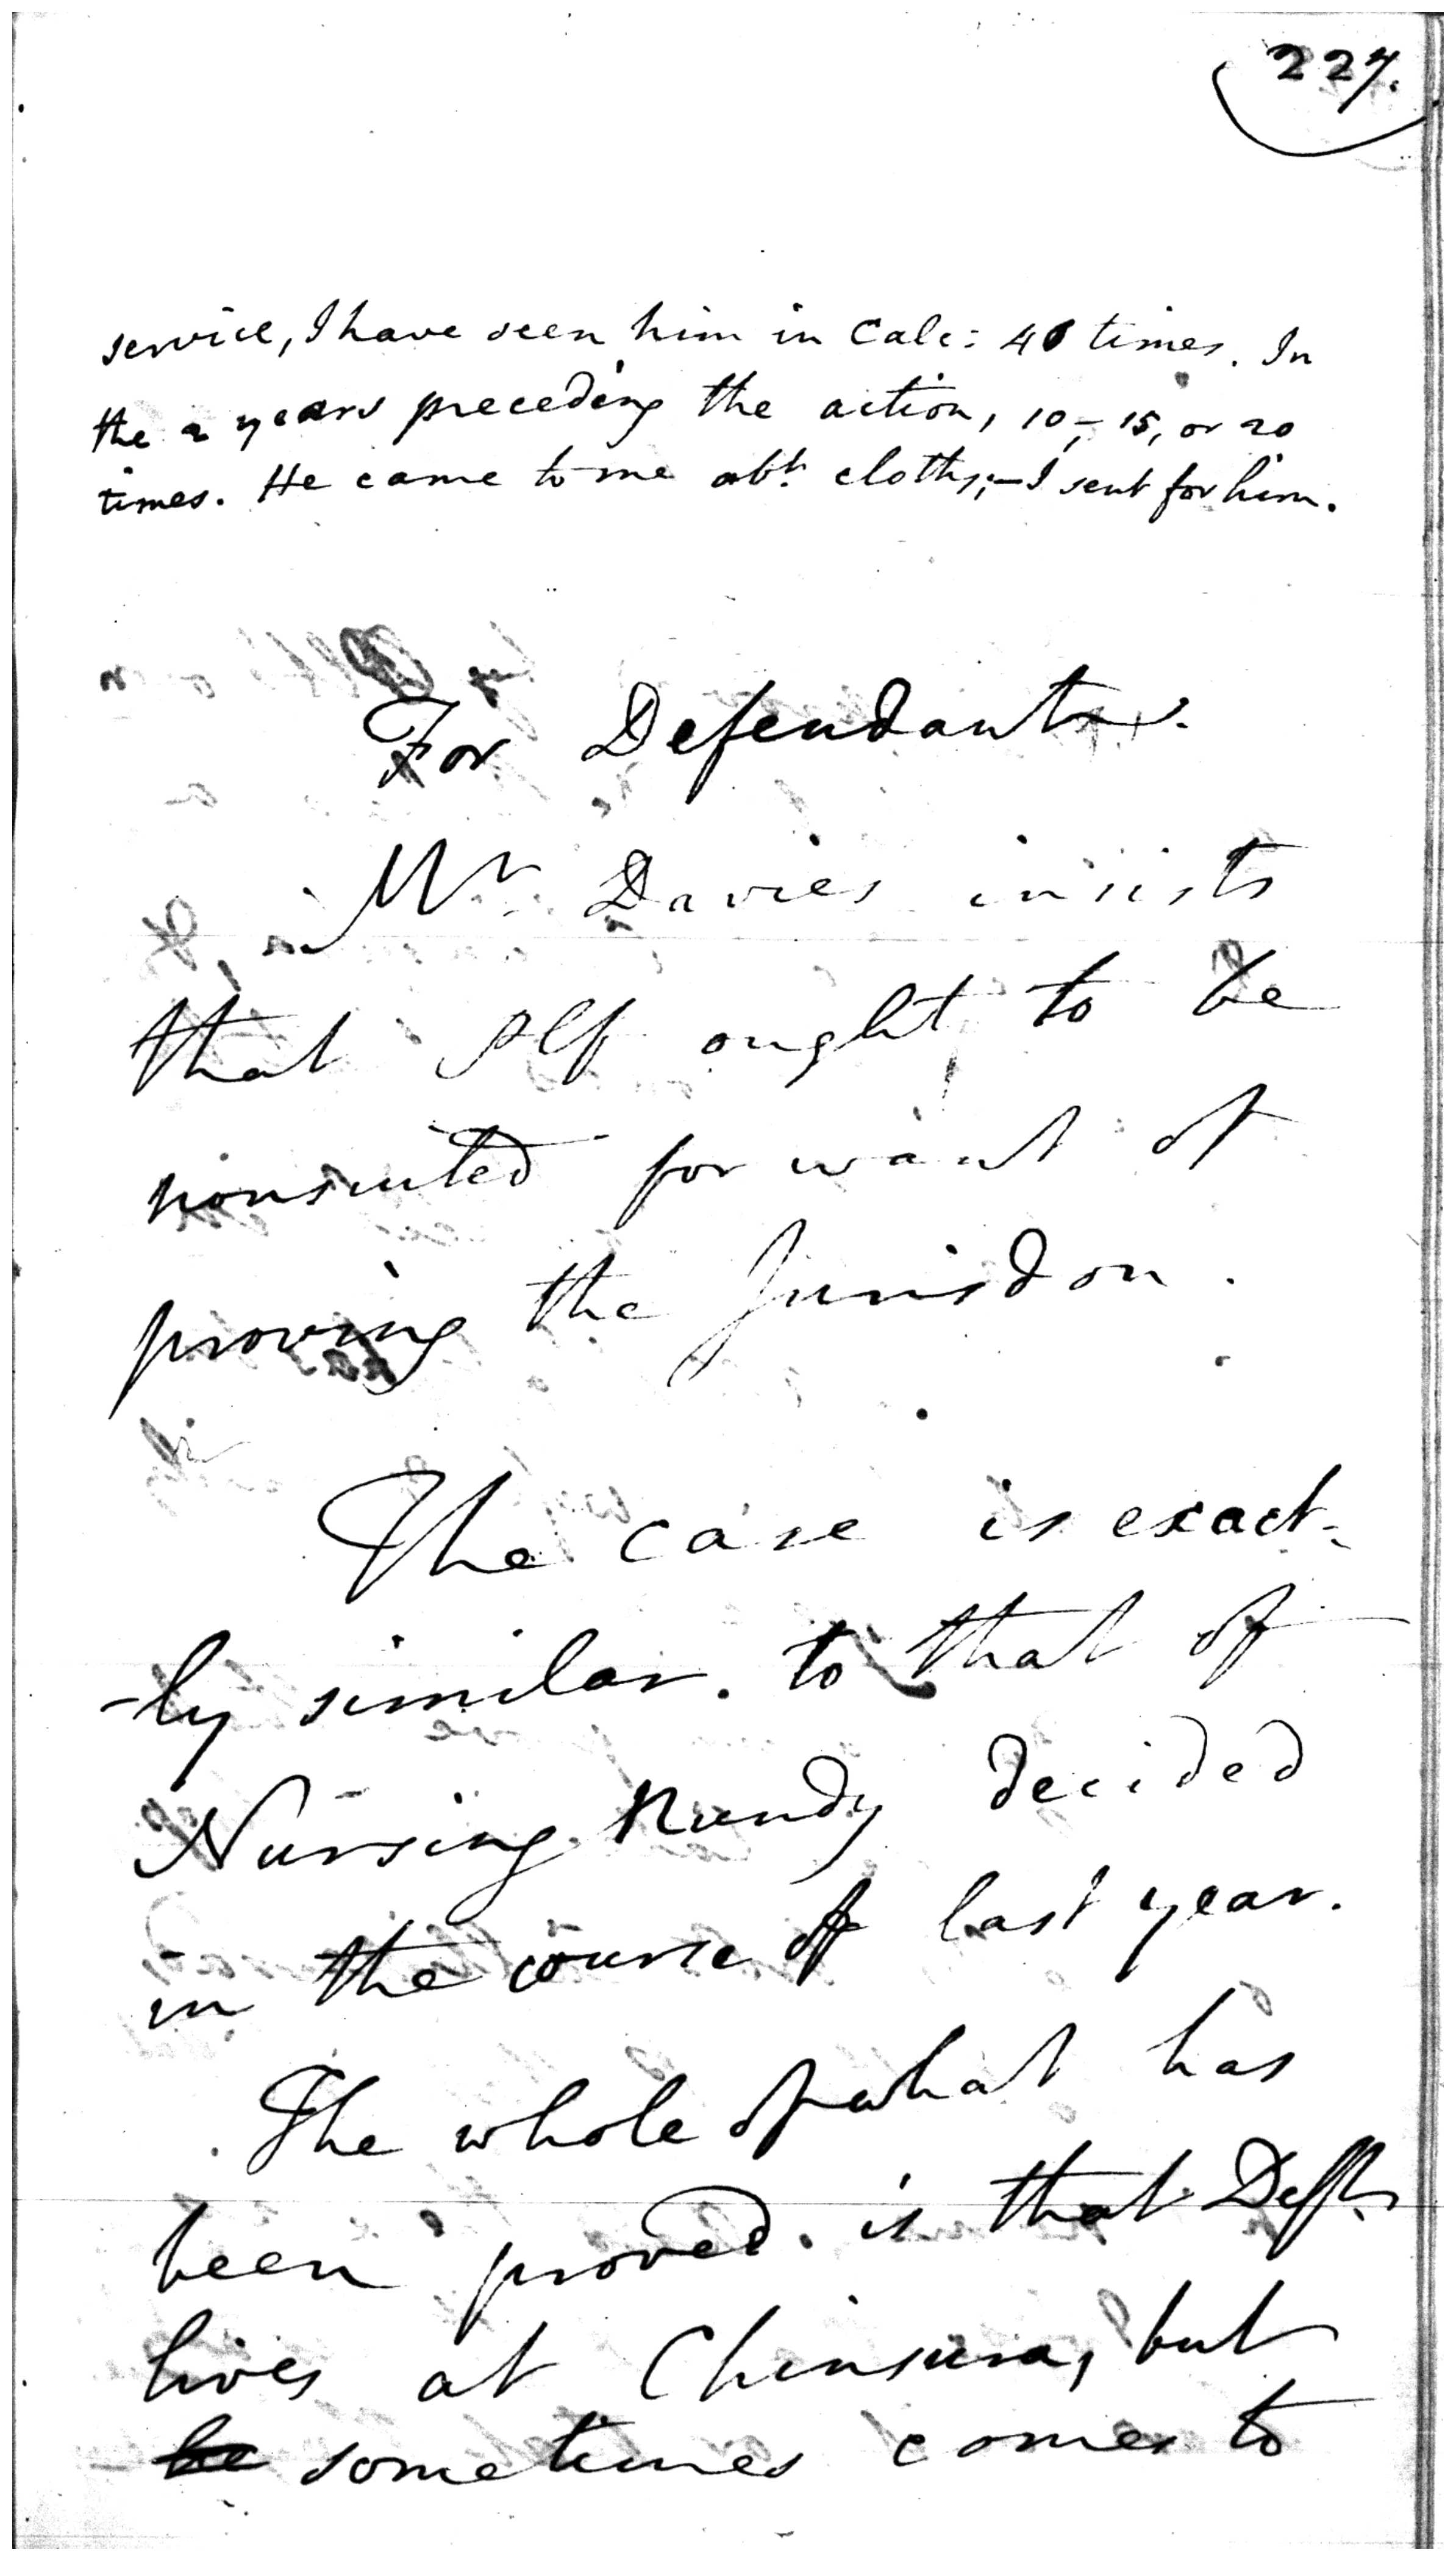 227.
service, I have seen him in Calc: 40 times. In
the 2 years preceding the action, 10, 15, or 20
times. He came to me abt. cloths;—I sent for him.
For Defendants.
Mr Davies insists
that Plf ought to be
nonsuited for want of
proving the Jurisdon.
The case is exact-
-ly similar. to that of
Nursing Nundy decided
in the course of last year.
The whole of what has
been proved. is that Deft.
lives at Chinsura, but
he sometimes comes to